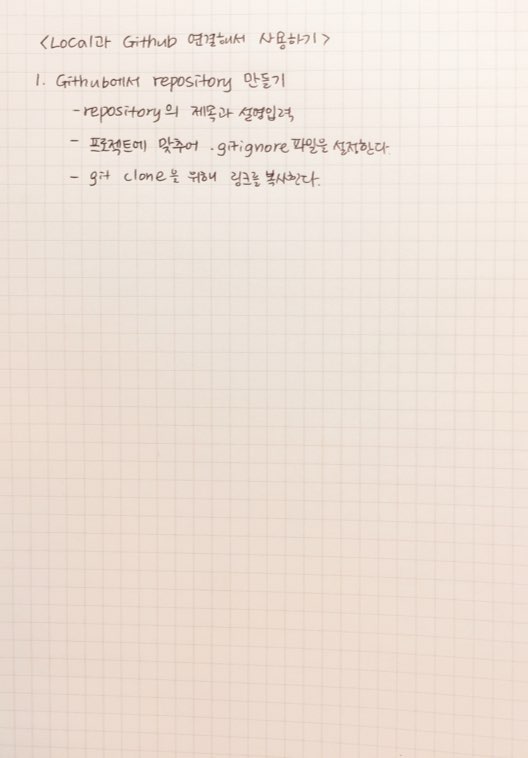 <Local과 Github 연결해서 사용하기>
1. Github에서 repository 만들기
- repository의 제목과 설명입력
- 프로젝트에 맞추어 .gitignore 파일을 설정한다.
- git clone을 위해 링크를 복사한다.